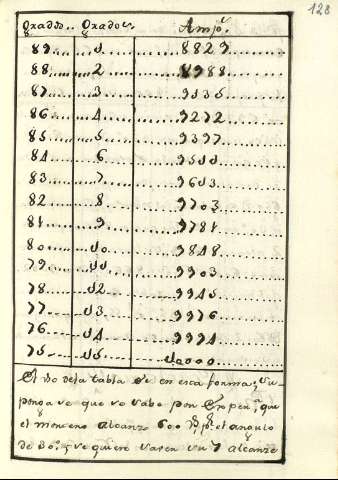 128
Grados.. Grados. Amp.
89....1....8829
88....2....8988
87....3....9135
86....4....9272
85....5....9397
84....6....9511
83....7....9613
82....8....9703
81....9....9781
80....10....9848
79....11....9903
78....12....9945
77....13....9976
76....14....9994
75....15....10000
El vso dela tabla es en esta forma; su-
ponga se que se sabe por que
el mortero alcanza 600 el angulo
de 30.º y se quiere saver su alcanze